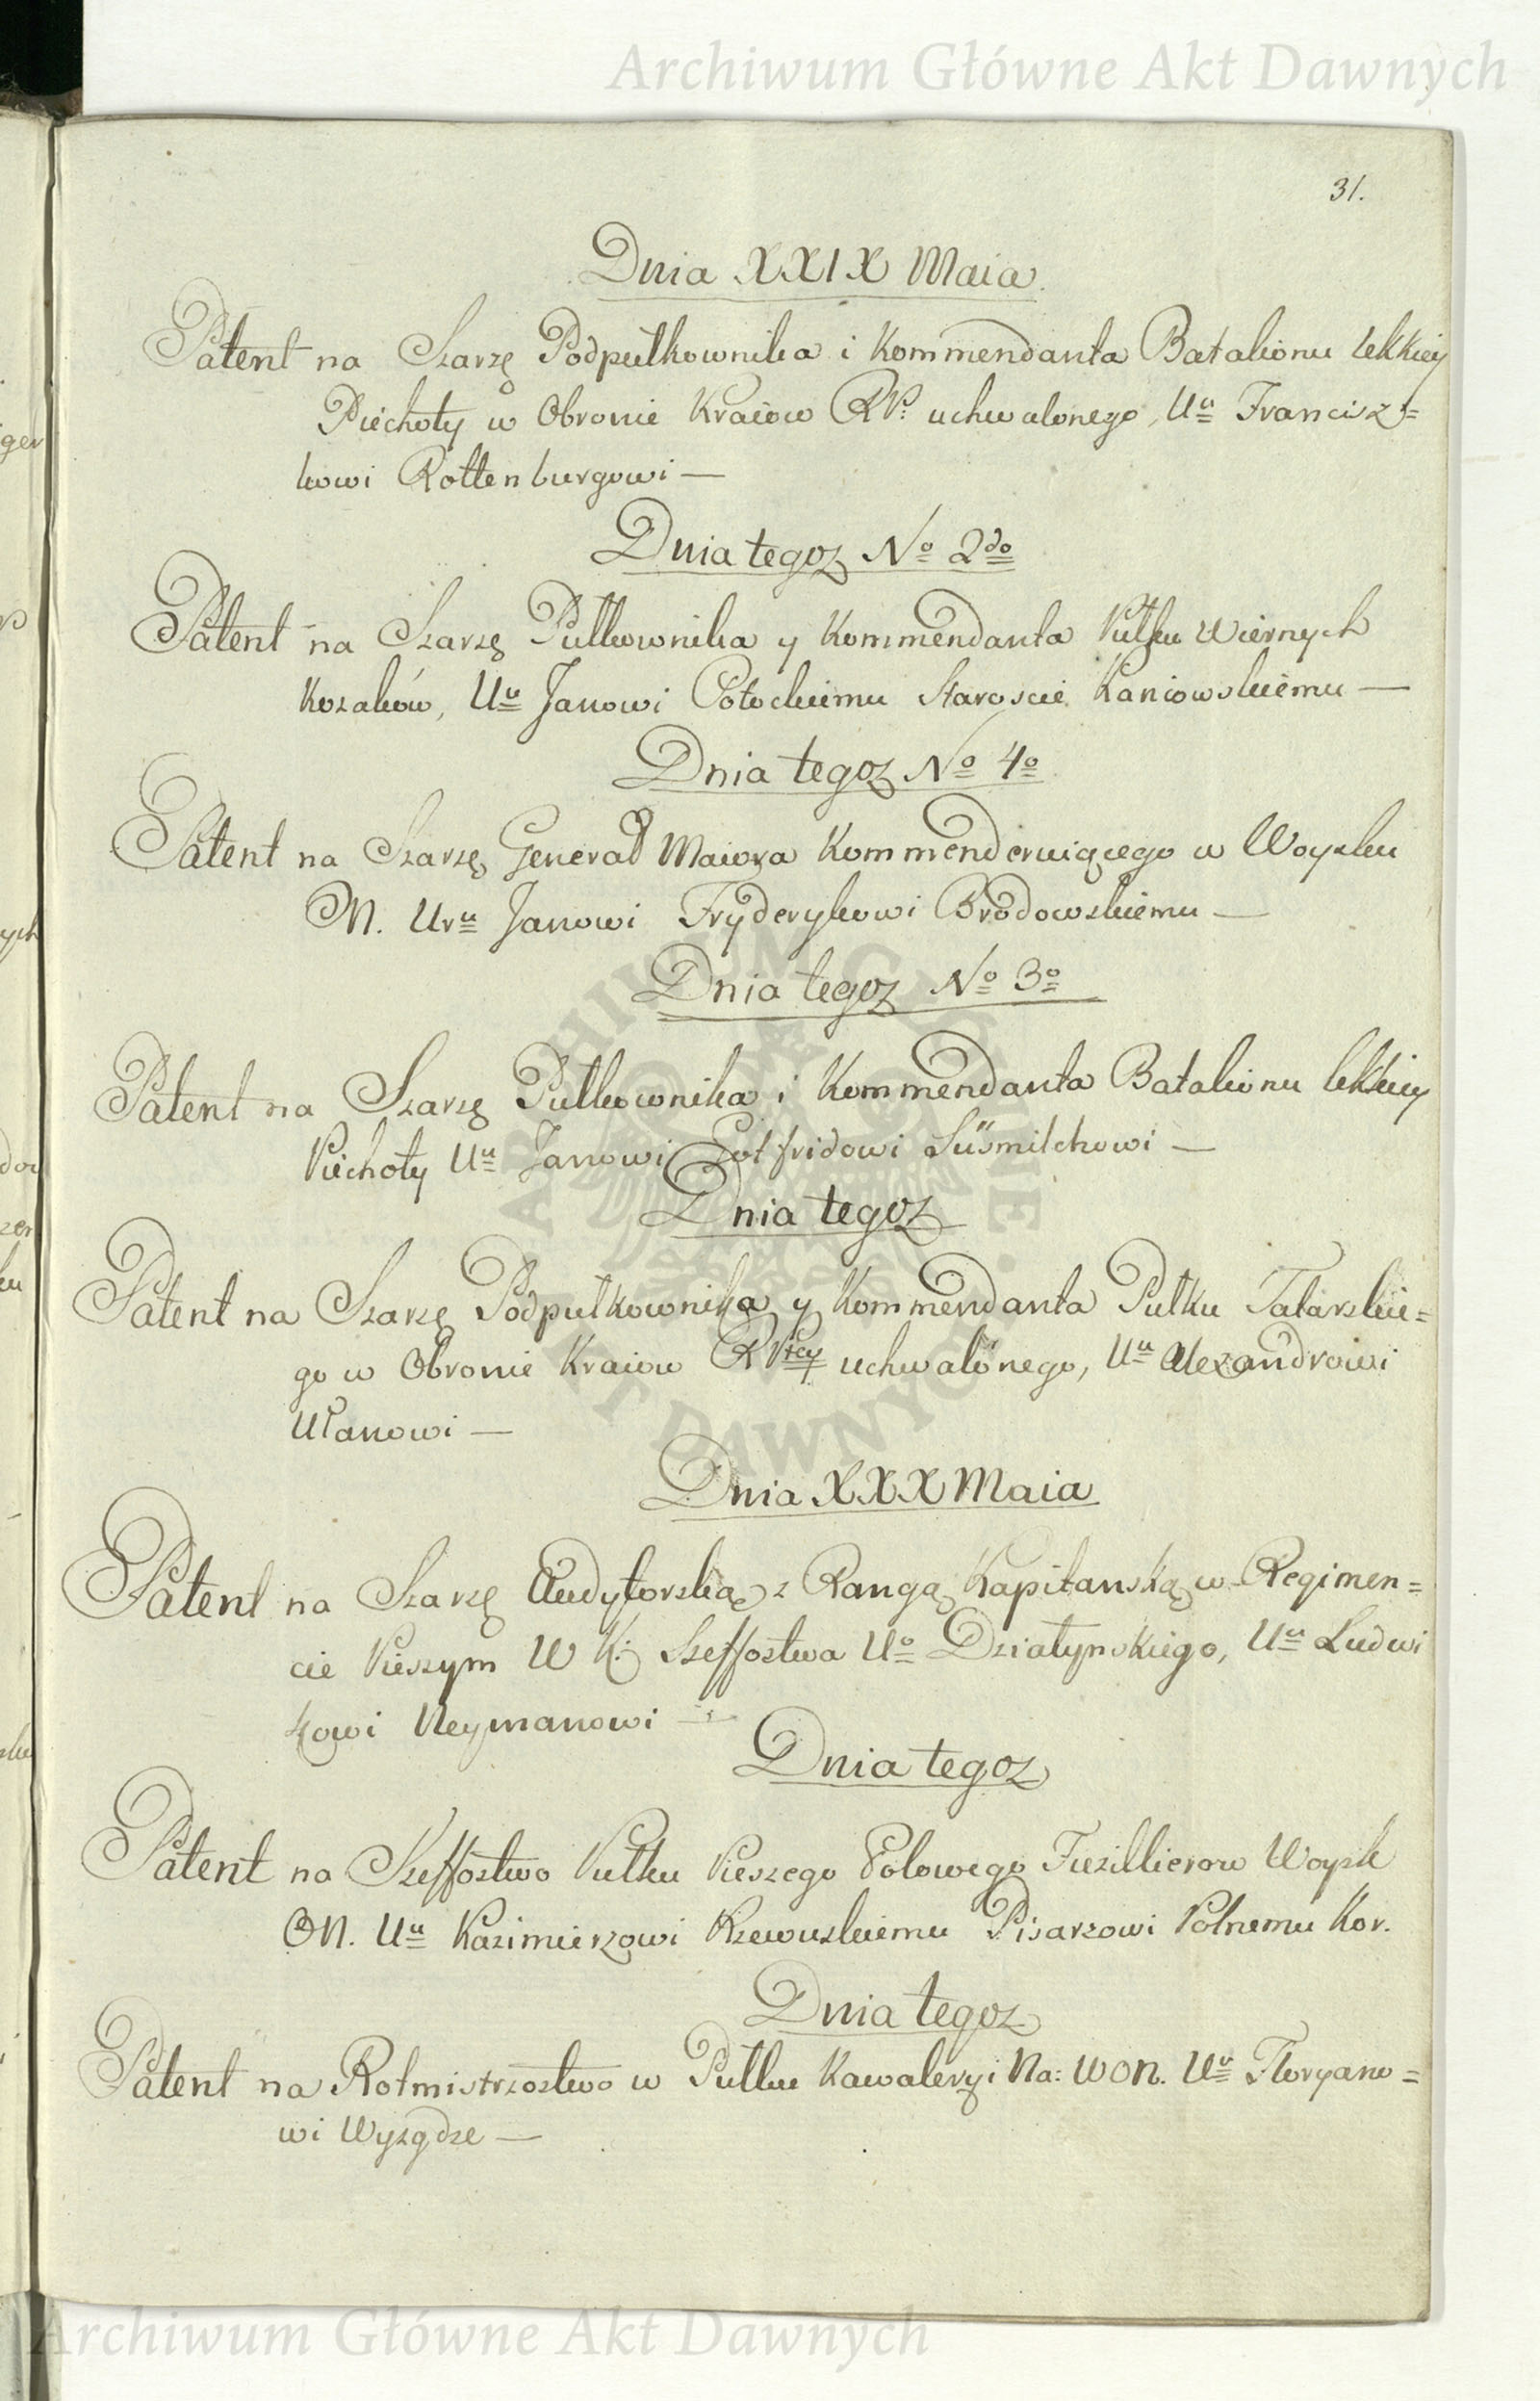 Archiwum Główne Akt Dawnych
31.
Dnia XXIX Maia
Patent na Szarzę Podpułkownika i Kommendanta Batalionu lekkiey
Piechoty w Obronie Kraiow RP: uchwalonego, Uu Francisz=
kowi Rottenburgowi —
Dnia tegoz No 2do
Patent na Szarzę Pułkownika y Kommendanta Pułku Wiernych
Kozaków, Uu Janowi Potockiemu Staroscie Kaniowskiemu —
Dnia tegoz No 4o
Patent na Szarzę General Maiora Kommenderuiącego w Woysku
N. Uru Janowi Fryderykowi Brodowskiemu —
Dnia tegoz No 3o
Patent na Szarzę Pułkownika i Kommendanta Batalionu lekkiey
Piechoty Uu Janowi Gotfridowi Süsmilchowi —
Dnia tegoz
Patent na Szarzę Podpułkownika y Kommendanta Pułku Tatarskie=
go w Obronie Kraiow RPtey uchwalonego, Uu Alexandrowi
Ułanowi —
Dnia XXX Maia
Patent na Szarzę Audytorską z Rangą Kapitanską w Regimen=
cie Pieszym W K: Szeffostwa Uo Działynskiego, Uu Ludwi
kowi Neymanowi —
Dnia tegoz
Patent na Szeffostwo Pułku Pieszego Polowego Fuzillierow Woysk
ON. Uu Kazimierzowi Rzewuskiemu Pisarzowi Polnemu Kor.
Dnia tegoz
Patent na Rotmistrzostwo w Pułku Kawaleryi Na: WON. Uu Floryano=
wi Wyzgdze —
Archiwum Główne Akt Dawnych